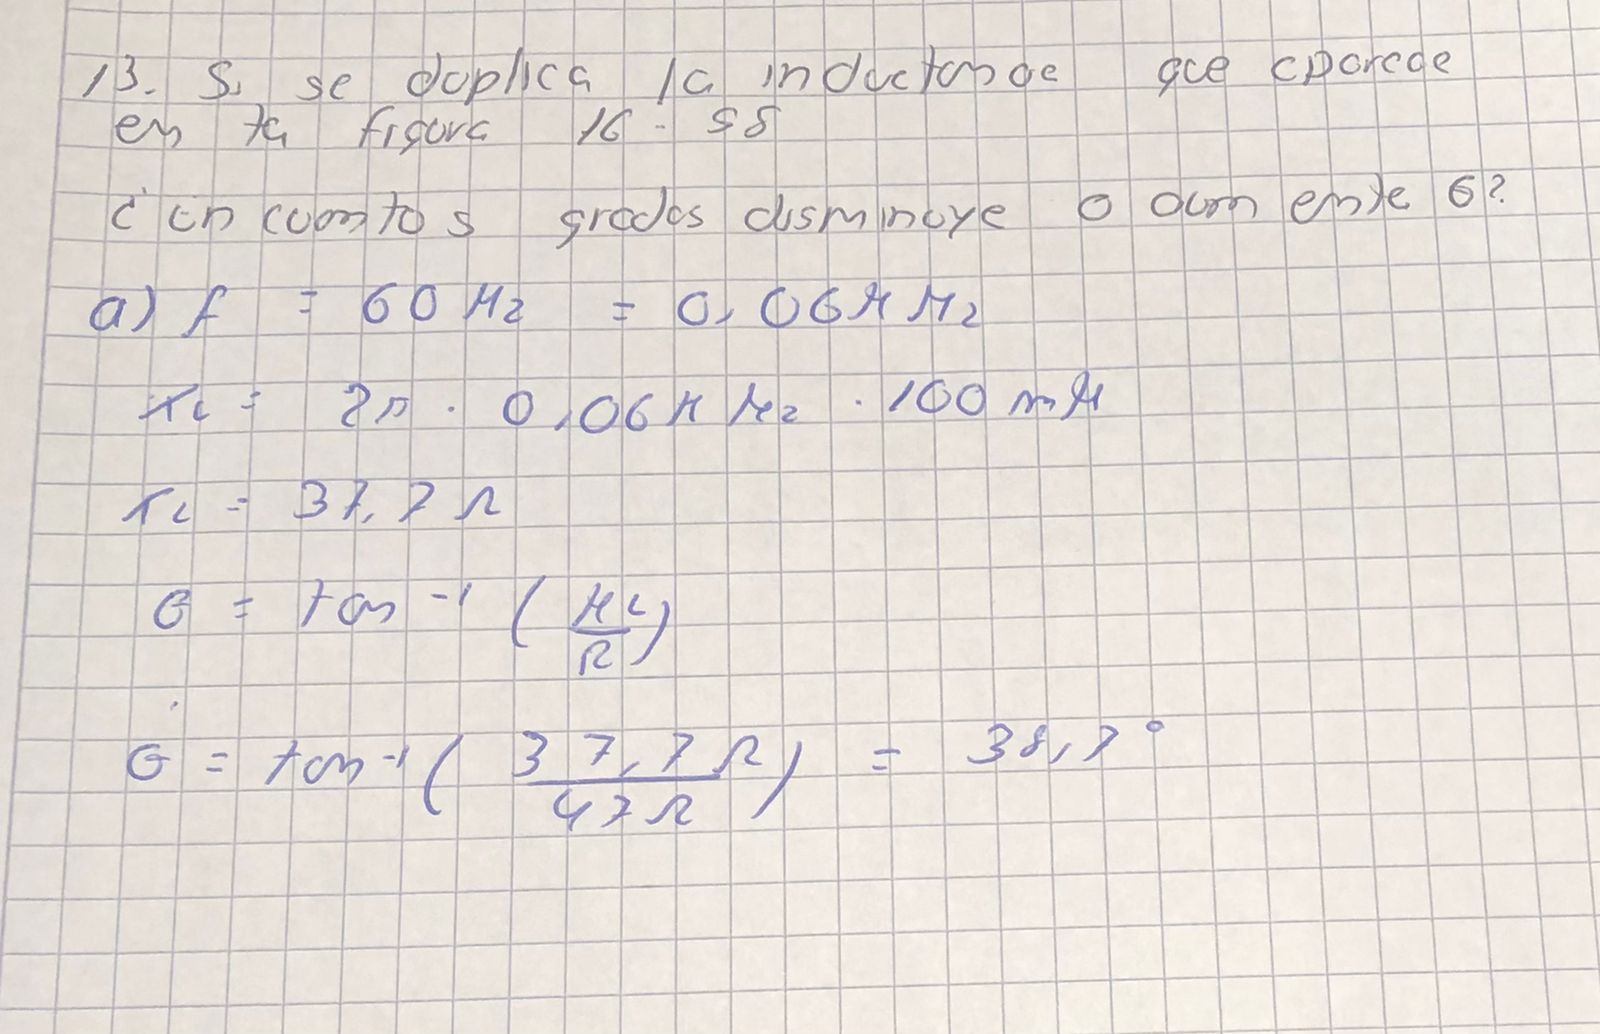 13. Si se duplica la inductance que aparece
en la figura 16-58
¿en cuantos grados disminuye o aumente θ?
a) f = 60 Hz = 0,06 K Hz
XL = 2π · 0,06 K Hz · 100 mH
XL = 37,7 Ω
θ = tan⁻¹ (XL/R)
θ = tan⁻¹ (37,7 Ω/47 Ω) = 38,7°